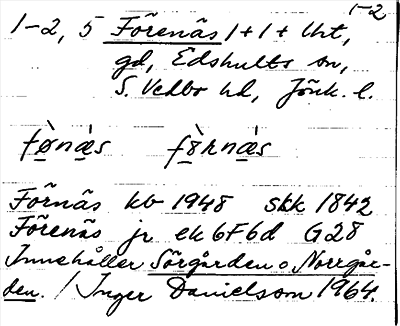 1-2
1-2, 5 Förenäs 1+1+1 ht,
gd, Edshults sn,
S. Vedbo hd, Jönk. l.
fø̀næ̀s fø̀rnæ̀s
Förnäs kb 1948 skk 1842
Förenäs jr ek 6F6d G28
Innehåller Sörgården o. Norrgår-
den. / Inger Danielsson 1964.